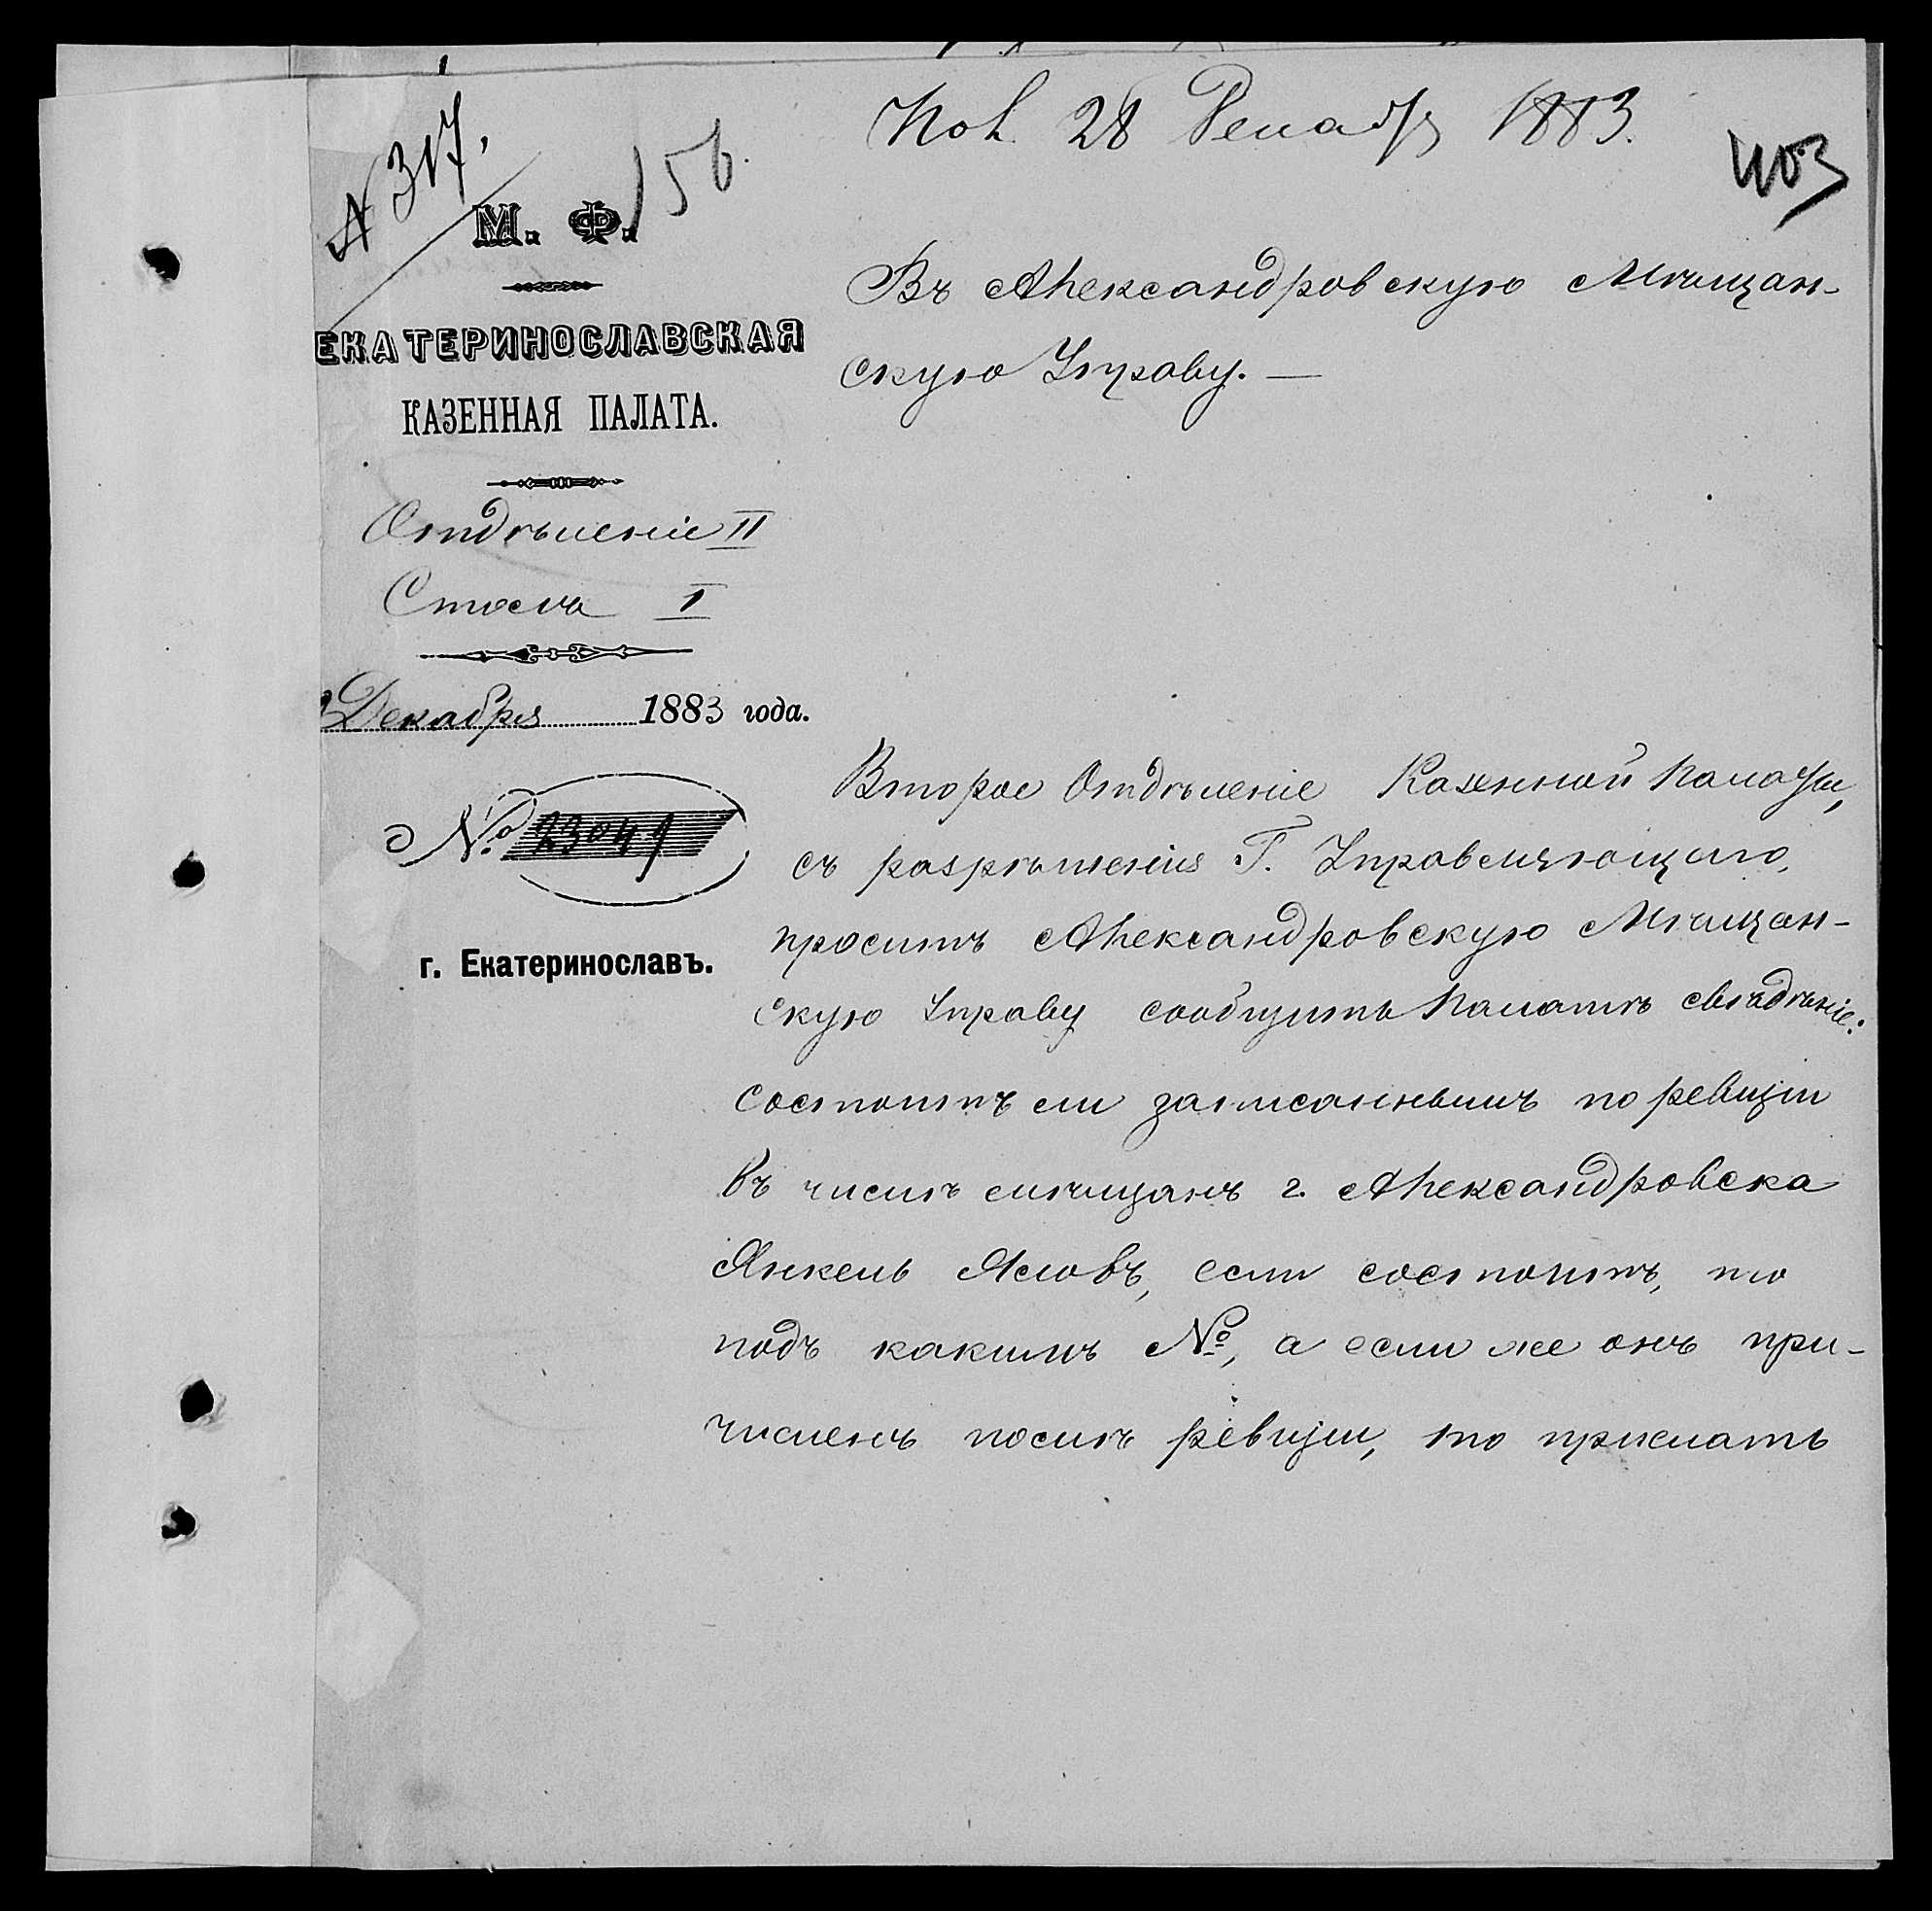 № 317.
156.
Пол. 28 Декабр 1883.
403
М. Ф.
ЕКАТЕРИНОСЛАВСКАЯ
КАЗЕННАЯ ПАЛАТА.
Отдѣленіе II
Стола I
Декабря 1883 года.
№ 23049
г. Екатеринославъ.
Въ Александровскую Мѣщан-
скую Управу. —
Второе Отдѣленіе Казенной Палаты,
съ разрѣшенія Г. Управляющаго,
проситъ Александровскую Мѣщан-
скую Управу сообщить Палатѣ свѣдѣніе:
состоитъ ли записаннымъ по ревизіи
въ числѣ мѣщанъ г. Александровска
Янкель Ясовъ, если состоитъ, то
подъ какимъ №, а если же онъ при-
численъ послѣ ревизіи, то прислать